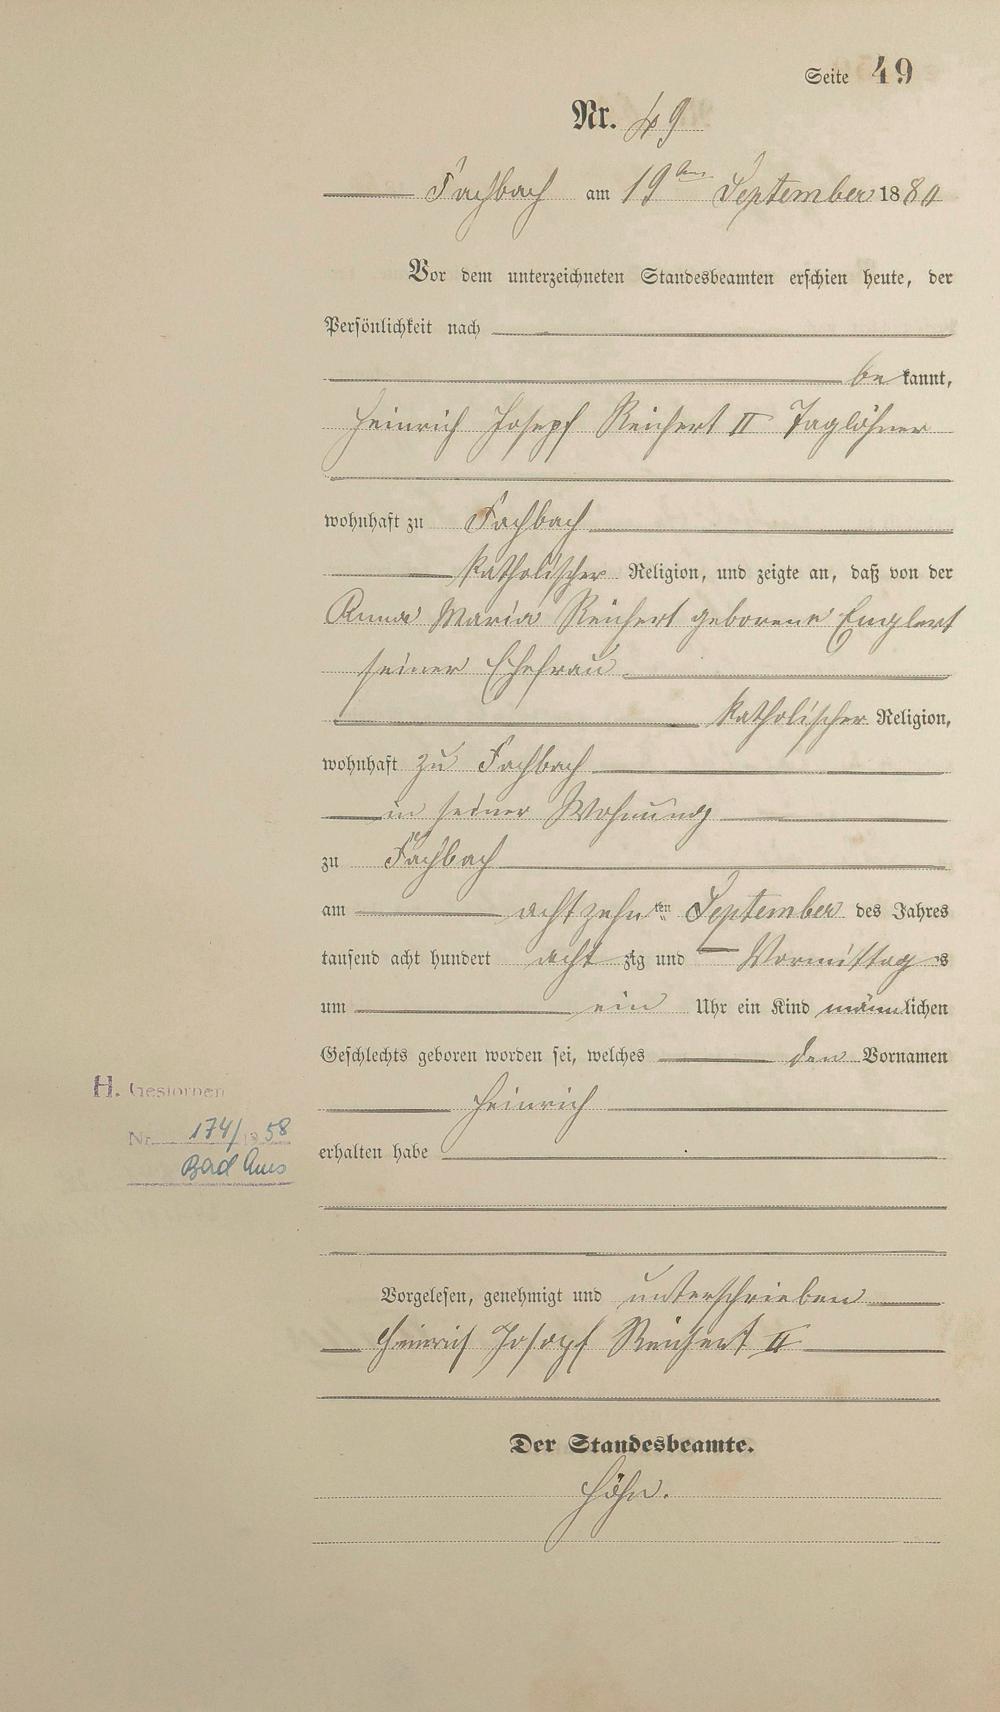 Seite 49
Nr. 49
Fachbach am 19ten September 1880
Vor dem unterzeichneten Standesbeamten erschien heute, der
Persönlichkeit nach
bekannt,
Heinrich Josepf Reichert II Taglöhner
wohnhaft zu Fachbach
katholischer Religion, und zeigte an, daß von der
Anna Maria Reichert geborene Englert
seiner Ehefrau
katholischer Religion,
wohnhaft zu Fachbach
in seiner Wohnung
zu Fachbach
am achtzehnten September des Jahres
tausend acht hundert achtzig und Vormittags
um ein Uhr ein Kind männlichen
Geschlechts geboren worden sei, welches den Vornamen
H. Gestorben
Heinrich
Nr. 174/1958
erhalten habe
Bad Ems
Vorgelesen, genehmigt und unterschrieben
Heinrich Josepf Reichert II
Der Standesbeamte.
Höhn.